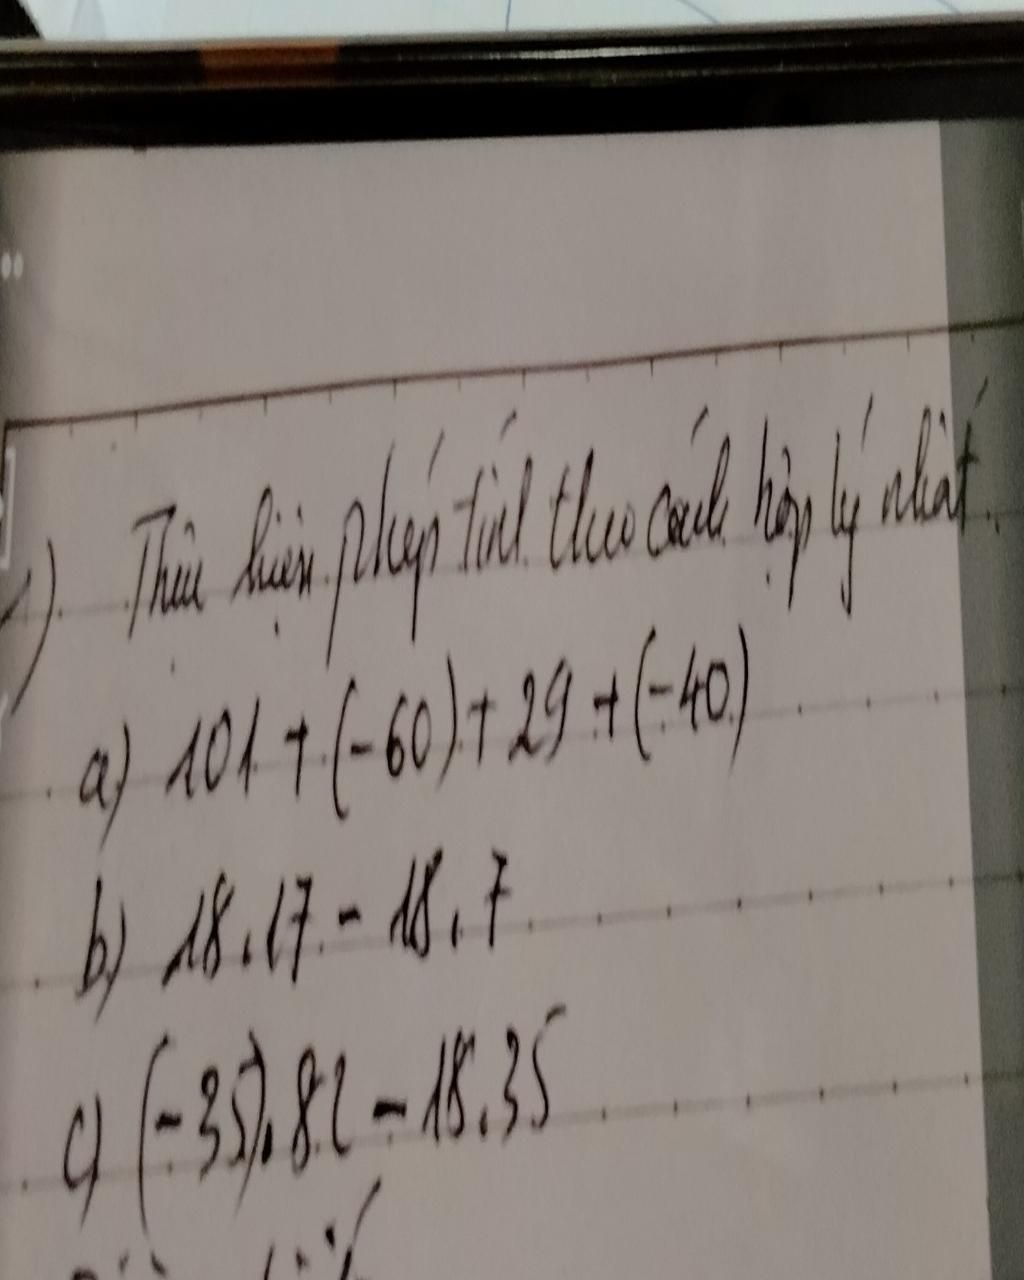 1) Thực hiện phép tính theo cách hợp lý nhất.
a) 101 + (-60) + 29 + (-40)
b) 18.17 - 18.7
c) (-35).82 - 18.35